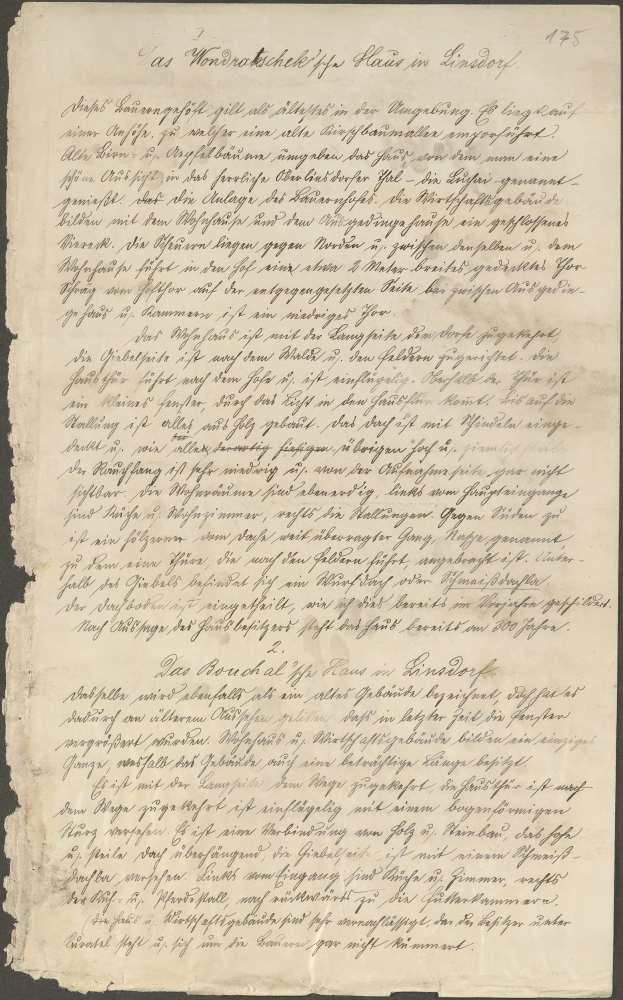 175
1.
Das Wondratschek'sche Haus in Linsdorf.
Dieses Bauerngehöft gilt als ältestes in der Umgebung. Es liegt auf
einer Anhöhe, zu welcher eine alte Kirschbaumallee emporführt.
Alte Birn- u. Aepfelbäume umgeben das Haus, von dem man eine
schöne Aussicht in das herrliche Oberlinsdorfer Thal – die genannt –
genießt. Das die Anlage des Bauernhofes. Die Wirtschaftsgebäude
bilden mit dem Wohnhause und dem Ausgedingehause ein geschlossenes
Viereck. Die Scheuern liegen gegen Norden u. zwischen denselben u. dem
Wohnhause führt in den Hof eine etwa 2 Meter breites gedecktes Thor.
Schräg vom Hofthor auf der entgegengesetzten Seite zwischen Ausgedin-
gehaus u. Kammern ist ein niedriges Thor.
Das Wohnhaus ist mit der Langseite dem Dorfe zugekehrt,
die Giebelseite ist nach dem Walde u. den Feldern zugerichtet. Die
Hausthür führt nach dem Hofe u. ist einflügelig. Oberhalb der Thür ist
ein kleines Fenster, durch das Licht in den Hausflur komt. Bis auf die
Stallung ist alles aus Holz gebaut. Das Dach ist mit Schindeln einge-
deckt u. wie bei allen derartig hiesigen, übrigen hoch u. ziemlich
Der Rauchfang ist sehr niedrig u. von der Aufnahmeseite gar nicht
sichtbar. Die Wohnräume sind ebenerdig, links vom Haupteingange
sind Küche u. Wohnzimmer, rechts die Stallungen. Gegen Süden zu
ist ein hölzerner vom Dache weit überragter Gang, genannt,
zu dem eine Thüre, die nach den Feldern führt, angebracht ist. Unter-
halb des Giebels befindet sich ein Wurfdach oder Schmeißdachla.
Der Dachboden ist eingetheilt, wie ich dies bereits im Vorjahre geschildert.
Nach Aussage des Hausbesitzers steht das Haus bereits an 300 Jahre.
2.
Das Bouchal'sche Haus in Linsdorf.
Dasselbe wird ebenfalls als ein altes Gebäude bezeichnet, doch hat es
dadurch an älterem Aussehen gelitten, dass in letzter Zeit die Fenster
vergrößert wurden. Wohnhaus u. Wirtschaftsgebäude bilden ein einziges
Ganze, weshalb das Gebäude auch eine beträchtliche Länge besitzt.
Es ist mit der Langseite dem Wege zugekehrt, die Hausthür ist nach
dem Wege zugekehrt ist einflügelig mit einem bogenförmigen
Sturz versehen. Es ist eine Verbindung von Holz u. Steinbau, das hohe
u. steile Dach überhängend, die Giebelseite ist mit einem Schmeiß-
dachla versehen. Links vom Eingang sind Küche u. Zimmer, rechts
der Kuh- u. Pferdestall, nach rückwärts zu die Futterkammern.
Die Haus u. Wirtschaftsgebäude sind sehr vernachlässigt, da der Besitzer unter
Curatel steht u. sich um die Bauerei gar nicht kümmert.